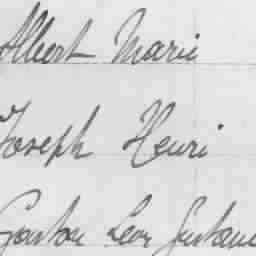 Albert Marie
Joseph Henri
Gaston Leon Gustave